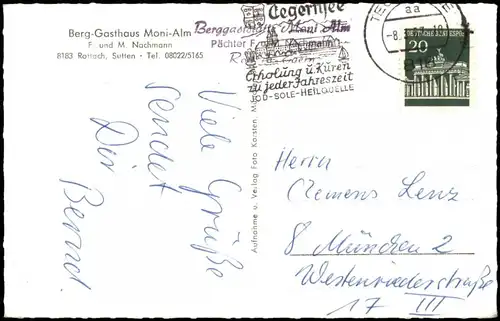 Berg-Gasthaus Moni-Alm
F. und M. Nachmann
8183 Rottach, Sutten - Tel. 08022/5165
Berggasthaus Moni Alm
Pächter F.
Viele Grüße
sendet
Dir Bernd.
Aufnahme u. Verlag Foto Karsten,
Tegernsee
Erholung u. Kuren
zu jeder Jahreszeit
JOD-SOLE-HEILQUELLE
TE
aa
-8.
DEUTSCHE BUNDESPOST
20
Herrn
Clemens Lenz
8 München 2
Westenriederstraße
17 III